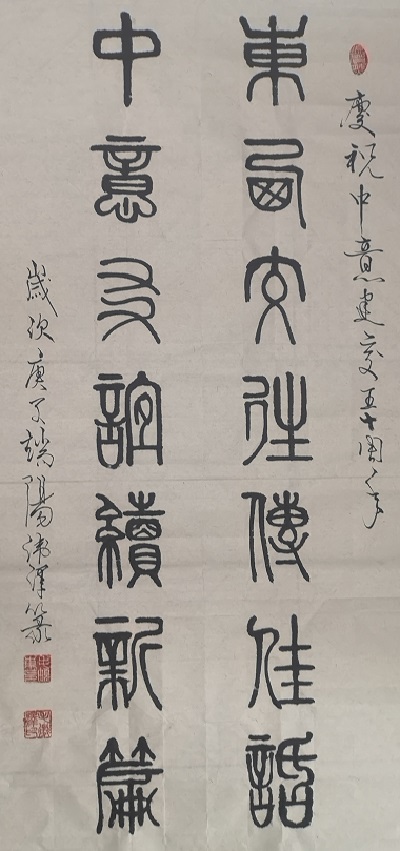 慶祝中意建交五十周年
東西交往傳佳話
中意友誼續新篇
歲次庚子端陽
篆